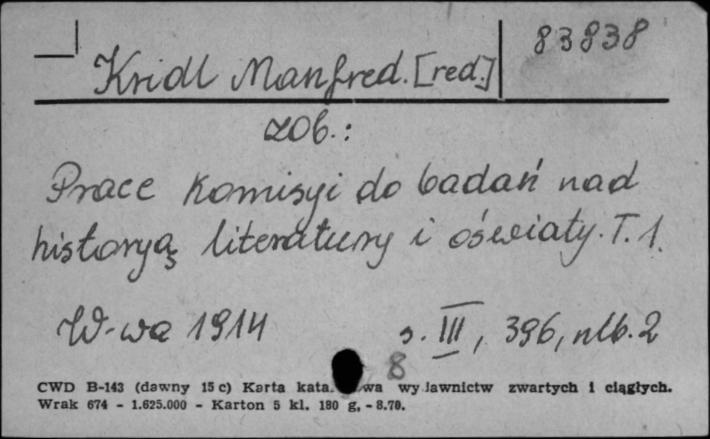 Kridl Manfred. [red.]
83838
zob.:
Prace Komisyi do badań nad
historyą literatury i oświaty. T. 1.
W-wa 1914
s. III, 396, nlb. 2
8
CWD B-143 (dawny 15 c) Karta kata wa wydawnictw zwartych i ciągłych.
Wrak 674 - 1.625.000 - Karton 5 kl. 180 g. - 8.70.